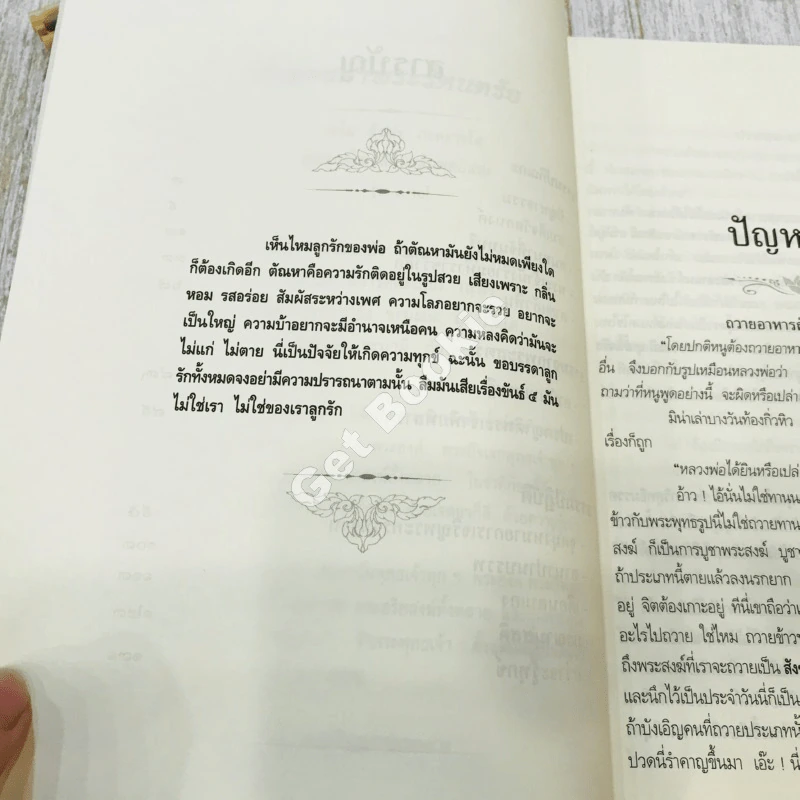 เห็นไหมลูกรักของพ่อ ถ้าตัณหามันยังไม่หมดเพียงใด
ก็ต้องเกิดอีก ตัณหาคือความรักติดอยู่ในรูปสวย เสียงเพราะ กลิ่น
หอม รสอร่อย สัมผัสระหว่างเพศ ความโลภอยากจะรวย อยากจะ
เป็นใหญ่ ความบ้าอยากจะมีอำนาจเหนือคน ความหลงคิดว่ามันจะ
ไม่แก่ ไม่ตาย นี่เป็นปัจจัยให้เกิดความทุกข์ ฉะนั้น ขอบรรดาลูก
รักทั้งหมดจงอย่ามีความปรารถนาตามนั้น ลืมมันเสียเรื่องขันธ์ ๕ มัน
ไม่ใช่เรา ไม่ใช่ของเราลูกรัก
Get Bookie
ปัญห
ถวายอาหารถ
“โดยปกติหนูต้องถวายอาหา
อื่น จึงบอกกับรูปเหมือนหลวงพ่อว่า
ถามว่าที่หนูพูดอย่างนี้ จะผิดหรือเปล่า
มิน่าเล่าบางวันท้องกิ่วหิว
เรื่องก็ถูก
“หลวงพ่อได้ยินหรือเปล่
อ้าว ! ไอ้นั่นไม่ใช่ทานน
ข้าวกับพระพุทธรูปนี่ไม่ใช่ถวายทาน
สงฆ์ ก็เป็นการบูชาพระสงฆ์ บูชา
ถ้าประเภทนี้ตายแล้วลงนรกยาก
อยู่ จิตต้องเกาะอยู่ ทีนี่เขาถือว่าเ
อะไรไปถวาย ใช่ไหม ถวายข้าว
ถึงพระสงฆ์ที่เราจะถวายเป็น สัง
และนึกไว้เป็นประจำวันนี่ก็เป็น
ถ้าบังเอิญคนที่ถวายประเภทนี้
ปวดนี่รำคาญขึ้นมา เอ๊ะ ! นี่